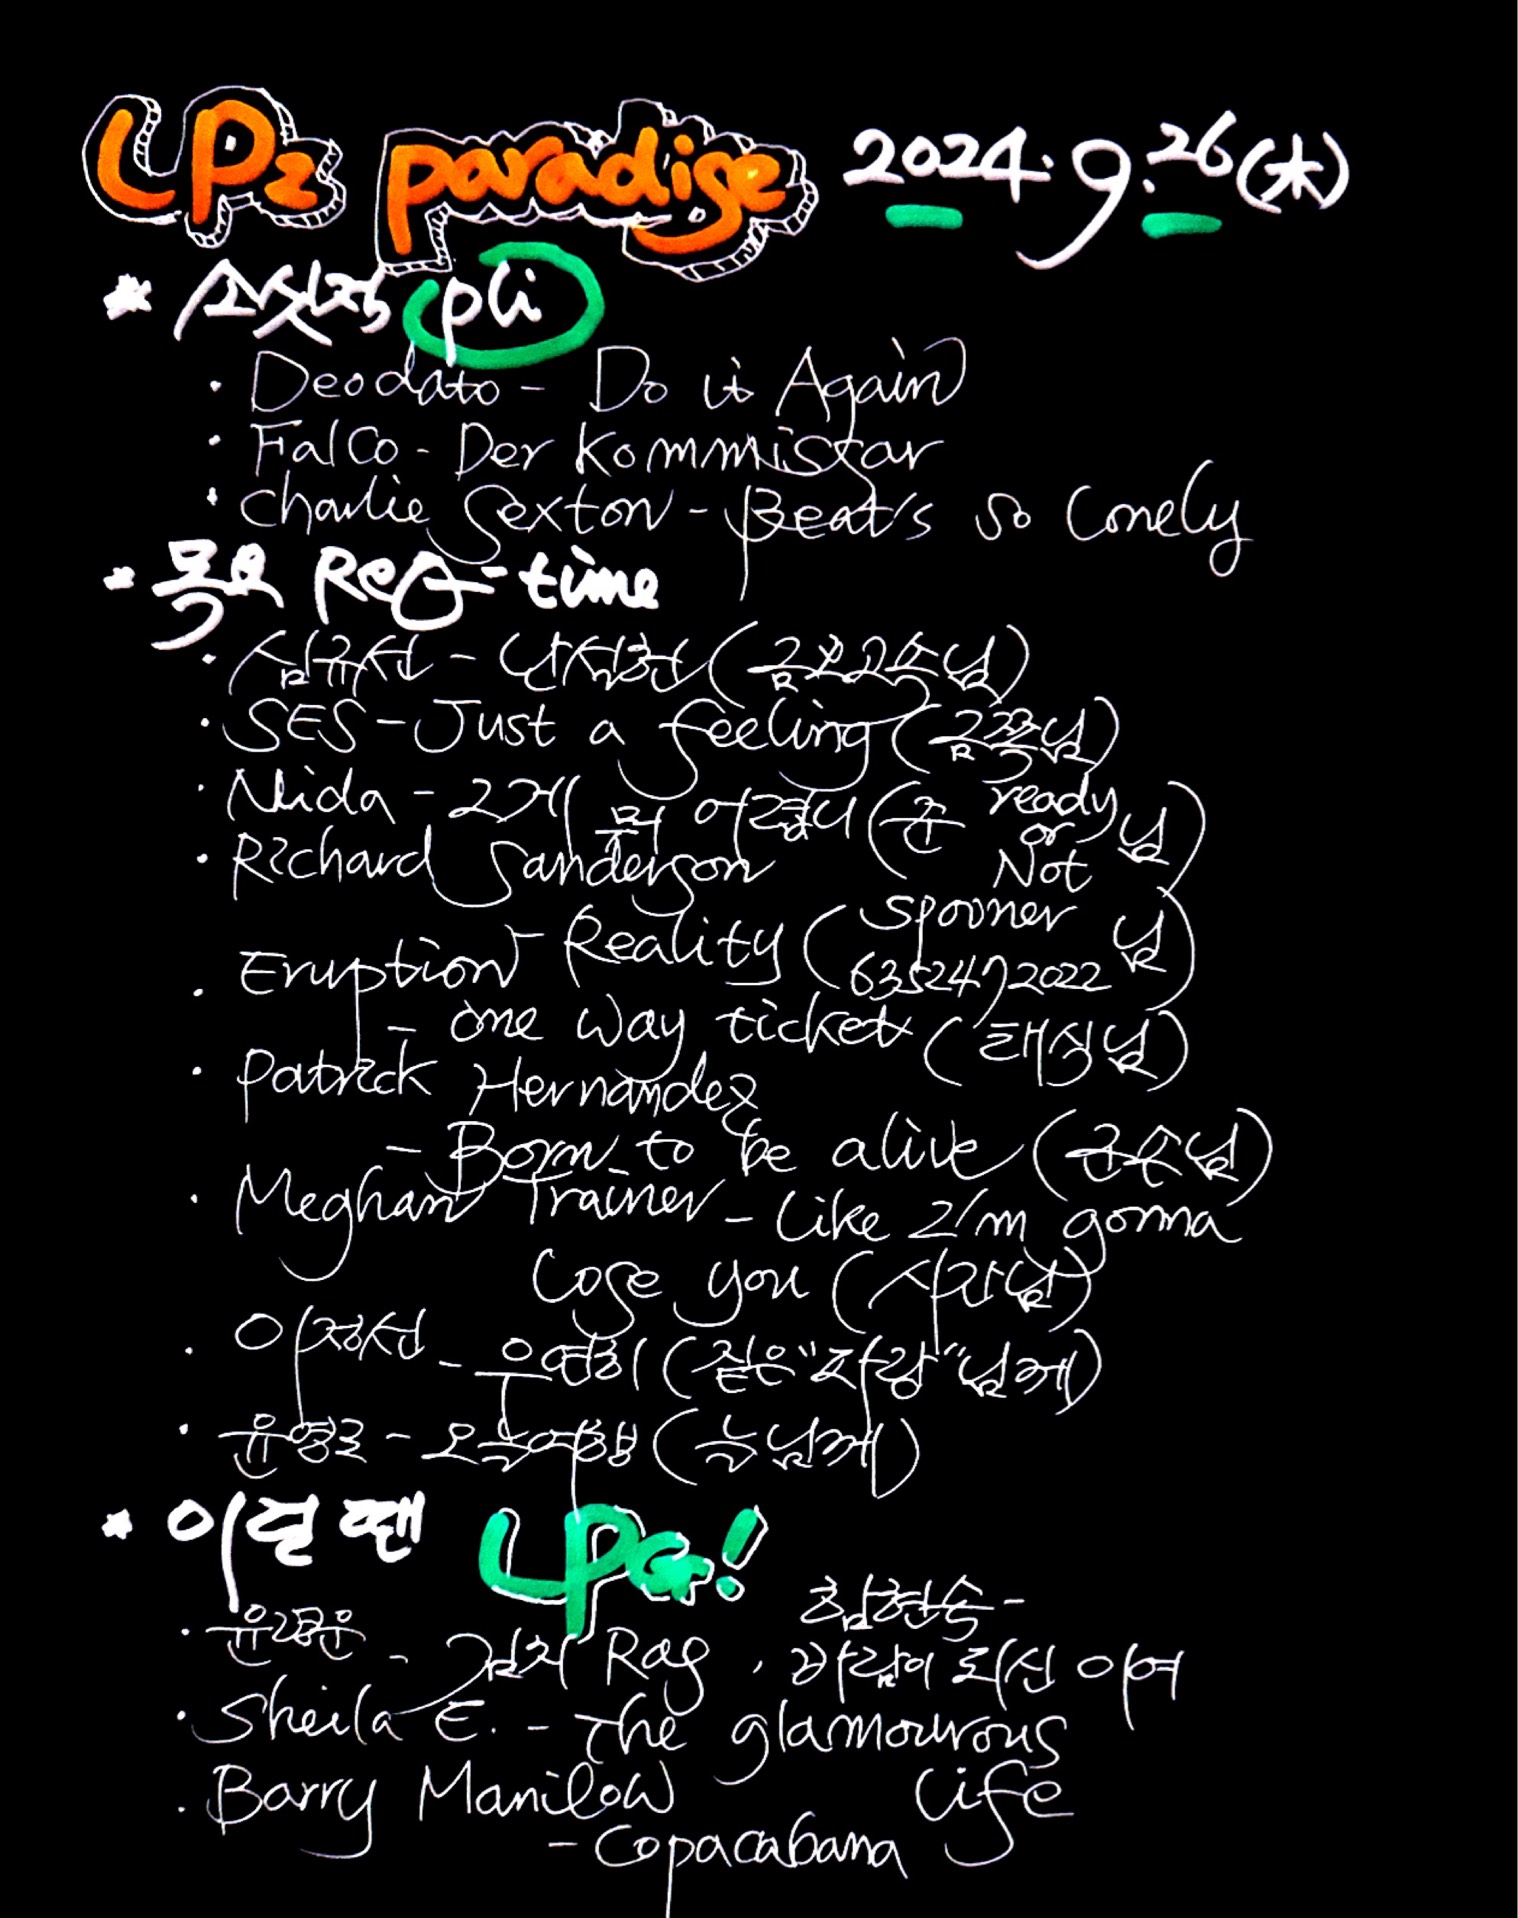 LPz paradise 2024. 9. 26 (木)
pli
· Deodato - Do it Again
· Falco - Der Kommistar
· Charlie Sexton - Beat's so Lonely
* 목요 ReQ-time
· 심규선 -
· SES - Just a feeling (
· Neida - (준 ready or Not 님)
· Richard Sanderson
- Reality (spooner 6352472022 님)
· Eruption
- one way ticket (태성님)
· Patrick Hernandez
- Born to be alive (
· Meghan Trainer - Like I'm gonna
Lose you (사라님)
· 이정선 - 우연히 (짙은 "파랑" 님께)
· 윤영로 - 오늘여행 (
* 이럴 땐 LPG!
· 함현숙 -
- 김치 Rag · 바람이 되신 이여
· Sheila E. - The glamourous
Life
· Barry Manilow
- Copacabana